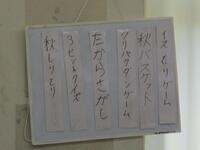 イスとりゲーム
秋バスケット
クリヤクダンゲーム
たからさがし
3ヒントクイズ
秋しりとり